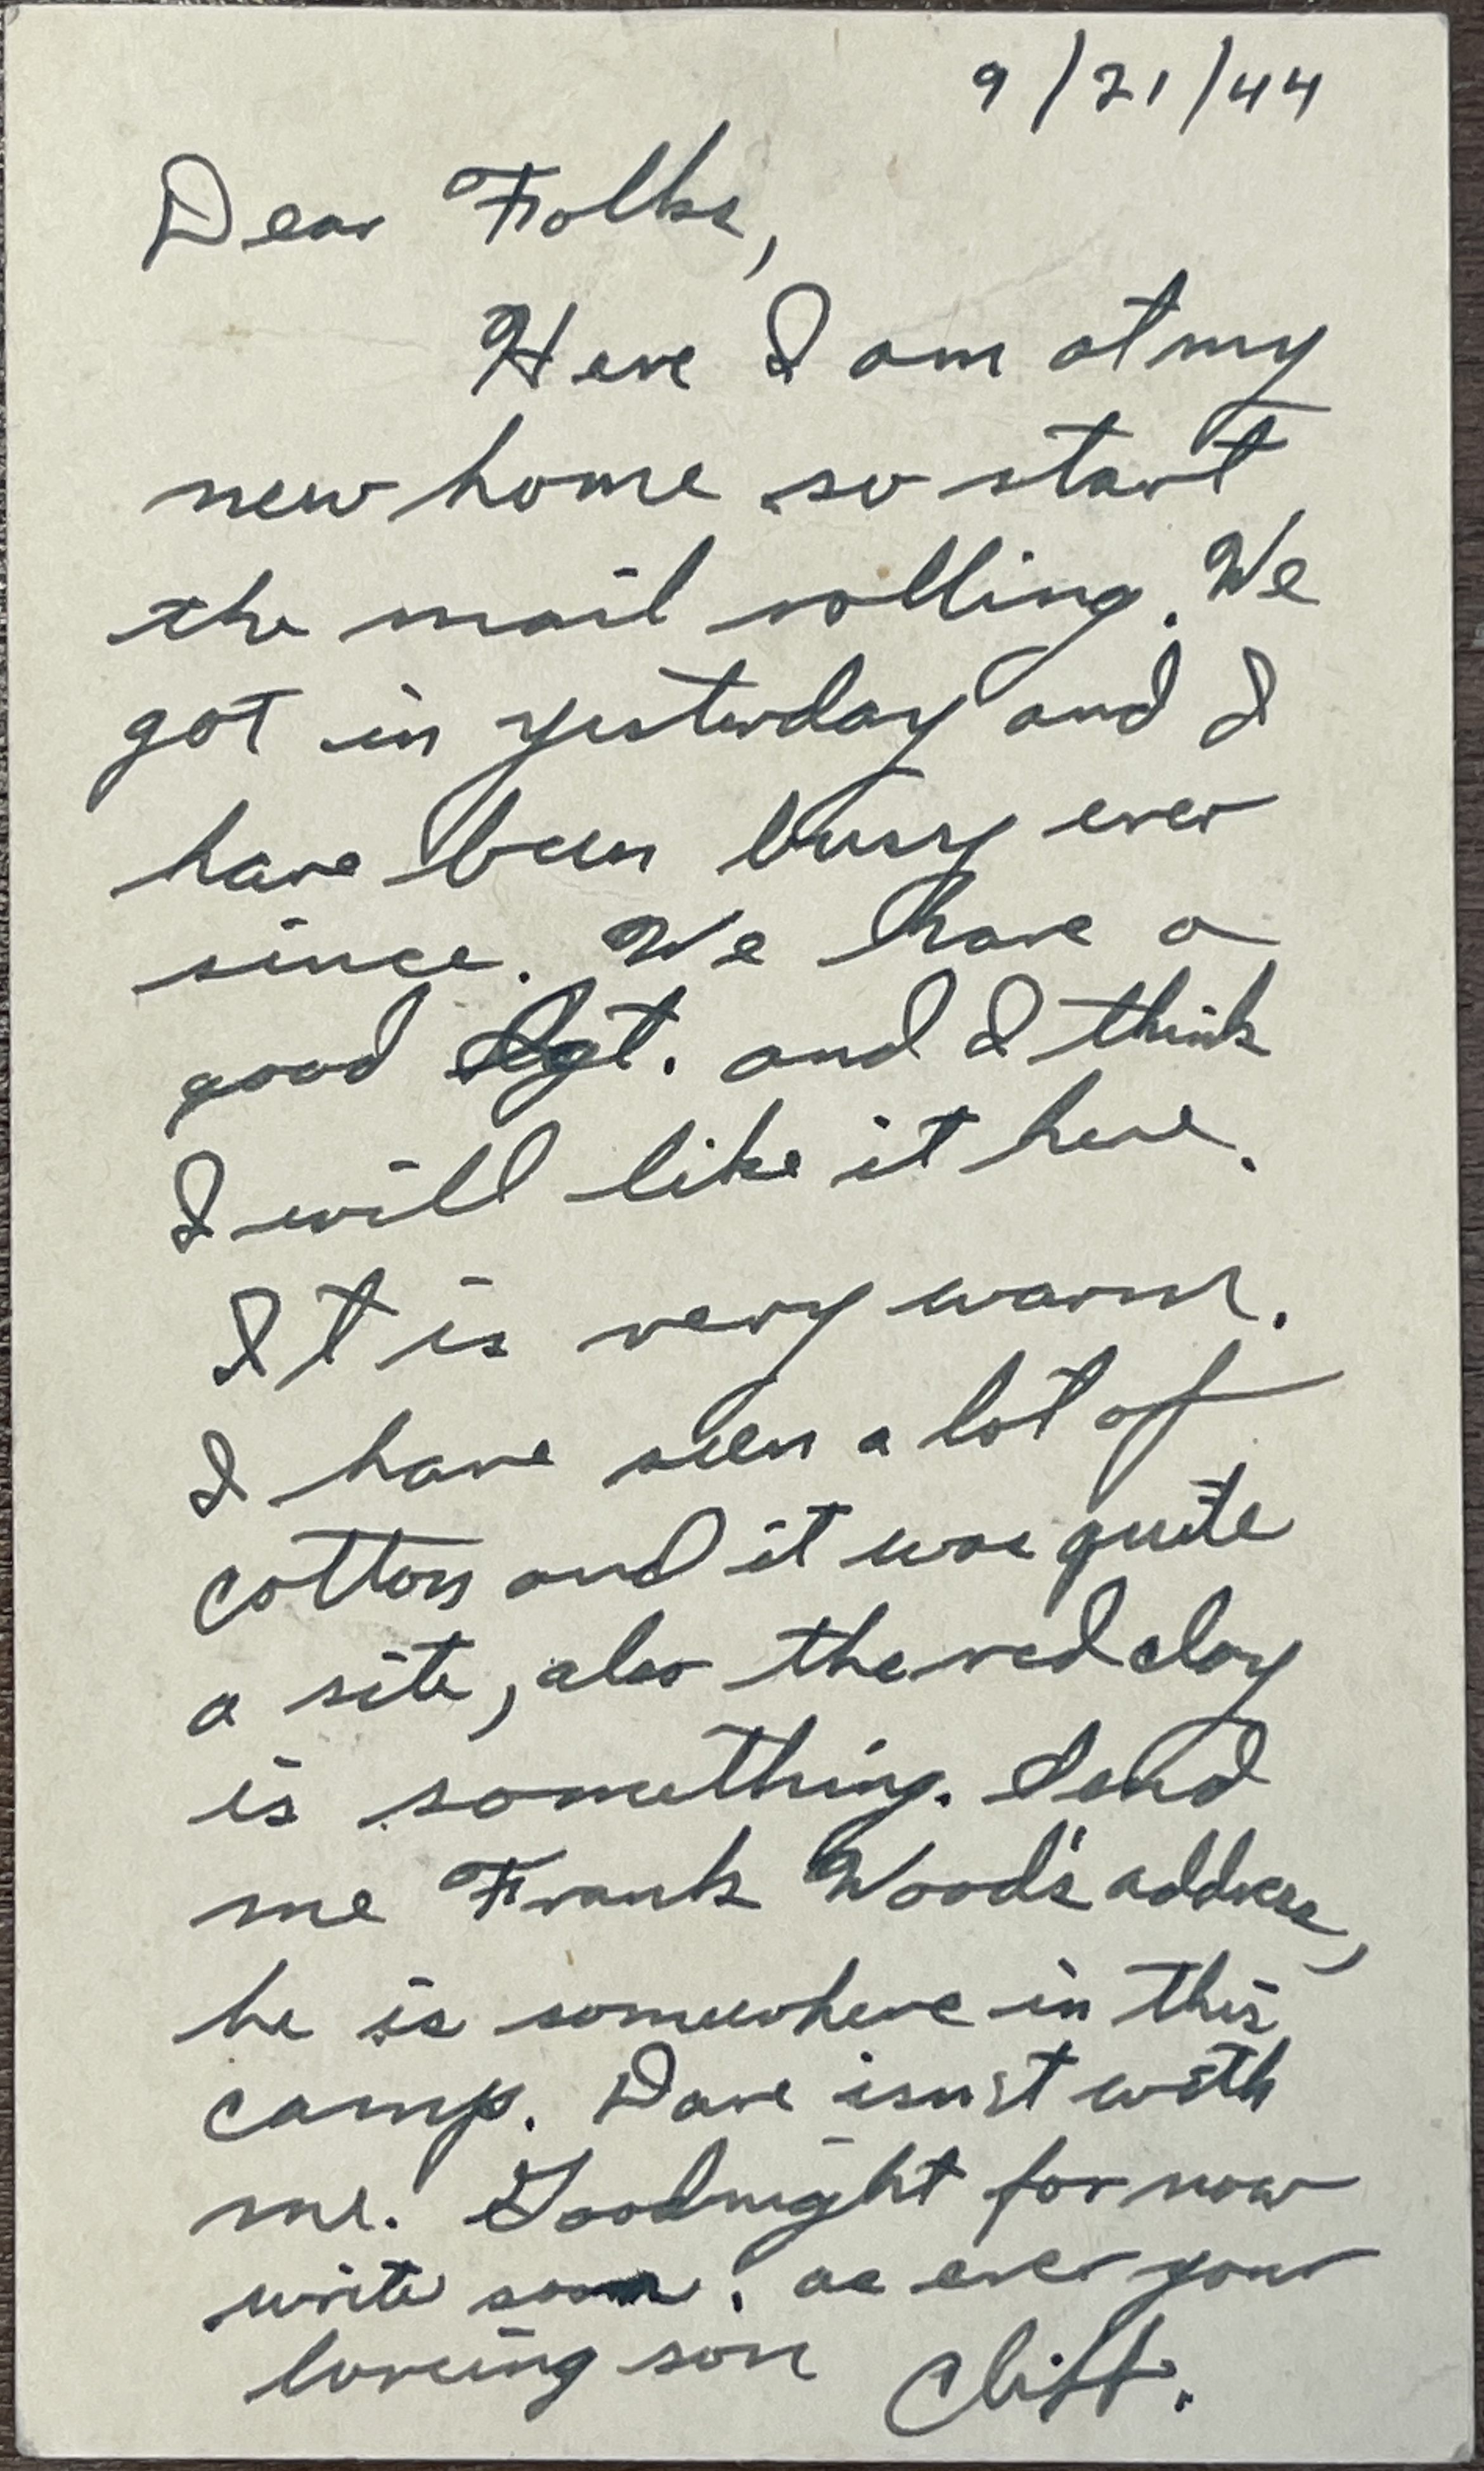 9/21/44
Dear Folks,
Here I am at my
new home so start
the mail rolling. We
got in yesterday and I
have been bussy ever
since. We have a
good Sgt. and I think
I will like it here.
It is very warm.
I have seen a lot of
cotton and it was quite
a site, also the red clay
is something. Send
me Frank Wood's address,
he is somewhere in this
camp. Dave isn't with
me. Goodnight for now
write soon. as ever your
loveing son Cliff.